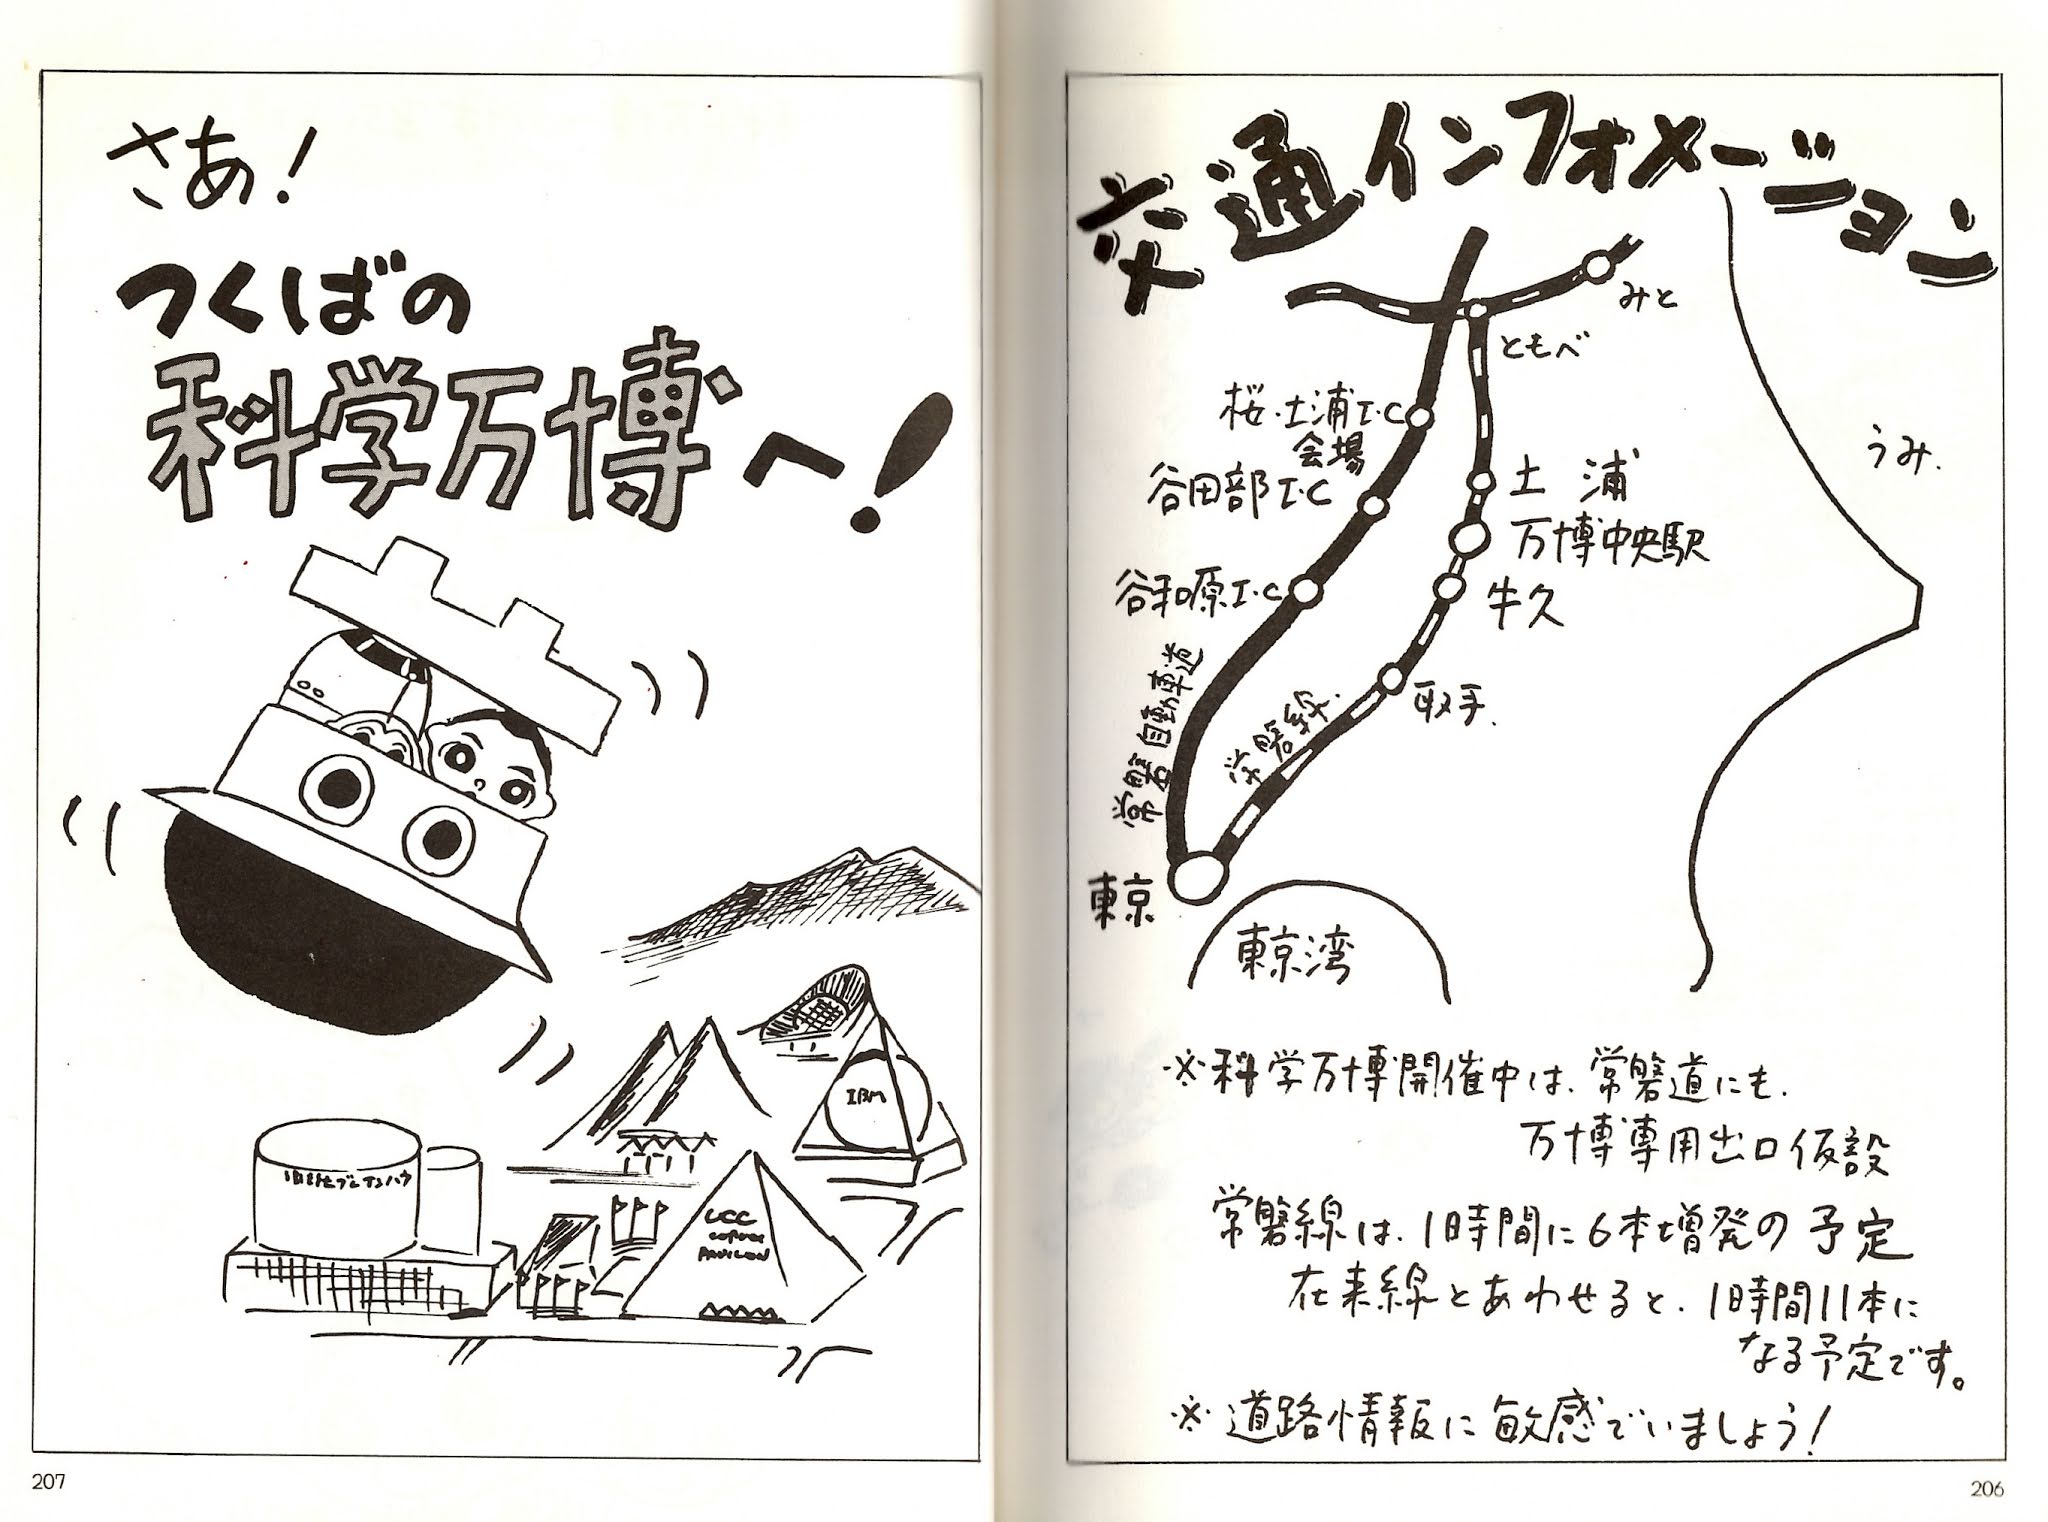 交通インフォメーション
みと
ともべ
桜・土浦I・C
会場
谷田部I・C
谷和原I・C
土浦
万博中央駅
牛久
取手.
常磐自動車道
常磐線
東京
東京湾
うみ.
※科学万博開催中は、常磐道にも、
万博専用出口仮設
常磐線は、1時間に6本増発の予定
在来線とあわせると、1時間11本に
なる予定です。
※道路情報に敏感でいましょう!
206
さあ!
つくばの
科学万博へ!
IBM
UCC
COFFEE
PAVILION
207